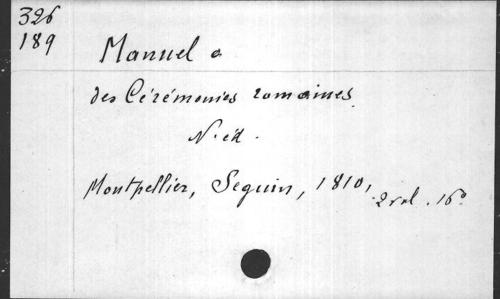 326
189
Manuel
des Cérémonies romaines.
N. éd.
Montpellier, Seguin, 1810, 2 vol. 16°